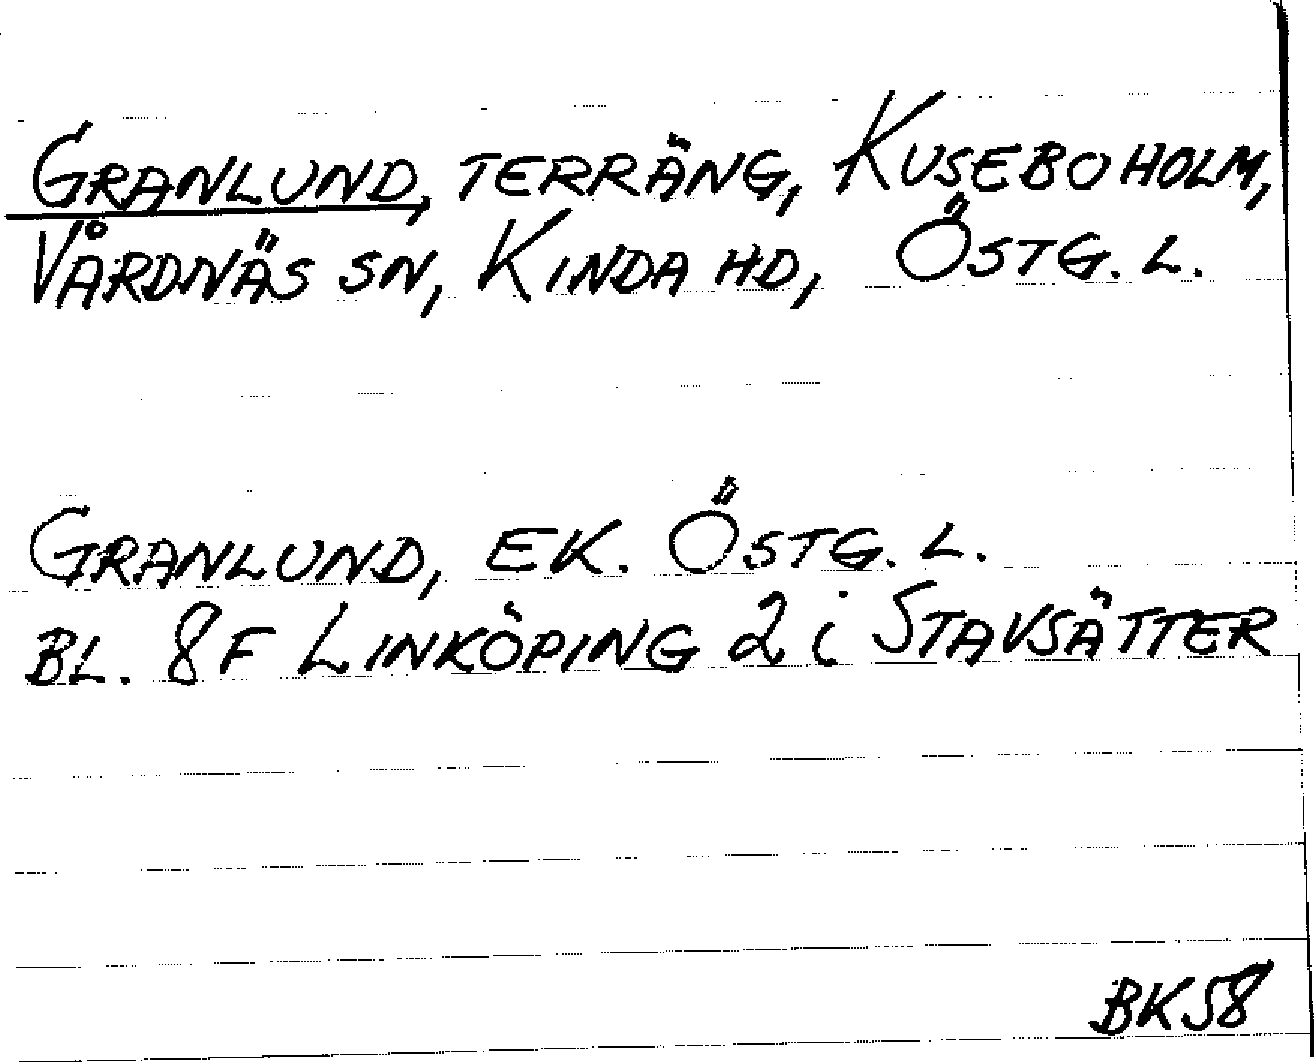 GRANLUND, TERRÄNG, KUSEBOHOLM,
VÅRDNÄS SN, KINDA HD, ÖSTG. L.
GRANLUND, EK. ÖSTG. L.
BL. 8F LINKÖPING 2 i STAVSÄTTER
BK58